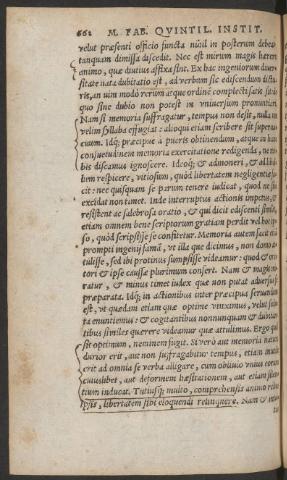 662 M. FAB. QVINTIL. INSTIT.
velut præsenti officio functa nihil in posterum debeat
tanquam dimissa discedit. Nec est mirum magis hærere
animo, quæ diutius affixa sint. Ex hac ingeniorum diuer-
sitate nata dubitatio est, ad verbum sic ediscendum dictu-
ris, an vim modo rerum atque ordinē complecti satis sit: de
quo sine dubio non potest in vniuersum pronuntiari.
Nam si memoria suffragatur, tempus non desit, nulla me
velim syllaba effugiat: alioqui etiam scribere sit superua-
cuum. Idq; præcipue à pueris obtinendum, atque in hanc
consuetudinem memoria exercitatione redigenda, ne no-
bis discamus ignoscere. Ideoq; & admoneri, & ad libel-
lum respicere, vitiosum, quòd libertatem negligentiæ fa-
cit: nec quisquam se parum tenere iudicat, quod ne sibi
excidat non timet. Inde interruptus actionis impetus, &
resistens ac salebrosa oratio, & qui dicit ediscenti similis,
etiam omnem bene scriptorum gratiam perdit vel hoc ip-
so, quòd scripsisse se confitetur. Memoria autem facit etiā
prompti ingenij famā, vt illa quæ dicimus, non domo at-
tulisse, sed ibi protinus sumpsisse videamur: quod & ora-
tori & ipse causæ plurimum confert. Nam & magis mi-
ratur, & minus timet iudex quæ non putat aduersus se
præparata. Idq; in actionibus inter præcipua seruandum
est, vt quædam etiam quæ optime vinximus, velut solu-
ta enuntiemus: & cogitantibus nonnunquam & dubitan-
tibus similes quærere videamur quæ attulimus. Ergo quid
sit optimum, neminem fugit. Si verò aut memoria natura
durior erit, aut non suffragabitur tempus, etiam inutile
erit ad omnia se verba alligare, cum obliuio vnius eorum
cuiuslibet, aut deformem hæsitationem, aut etiam silen-
tium inducat. Tutiusq; multo, comprehensis animo rebus
ipsis, libertatem sibi eloquendi relinquere. Nam &